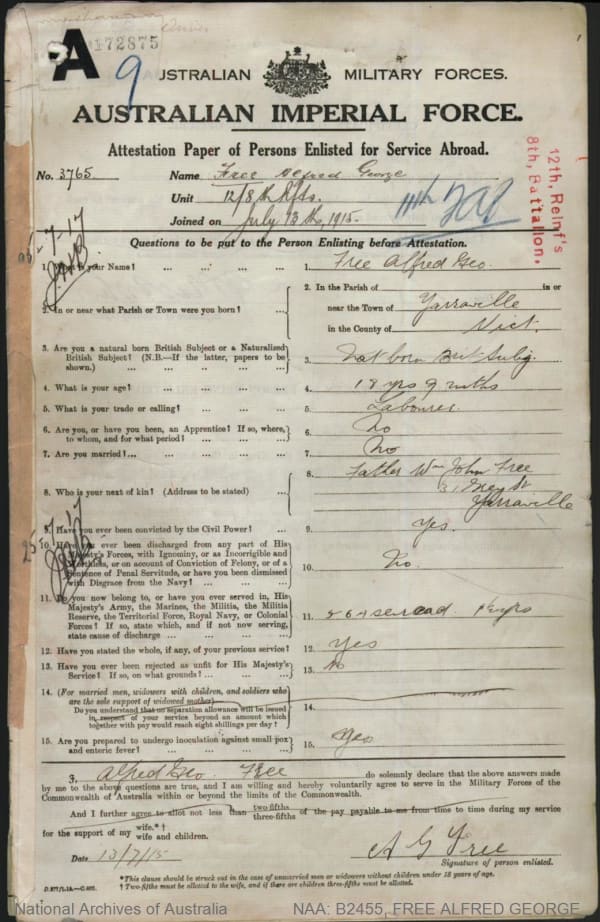 172875
A
9
AUSTRALIAN MILITARY FORCES.
AUSTRALIAN IMPERIAL FORCE.
Attestation Paper of Persons Enlisted for Service Abroad.
12th, Reinf's
8th, Battalion,
No. 3765 Name Free Alfred George
Unit 12/8th Rfts.
Joined on July 13th, 1915.
11th
Questions to be put to the Person Enlisting before Attestation.
1. What is your Name? ... ... ... ... 1. Free Alfred Geo.
2. In or near what Parish or Town were you born? ... 2. In the Parish of in or
near the Town of Yarraville
in the County of Vict.
3. Are you a natural born British Subject or a Naturalized
British Subject? (N.B.—If the latter, papers to be
shown.) ... ... ... ... 3. Nat born Brit Subj.
4. What is your age? ... ... ... ... 4. 18 yrs 9 mths
5. What is your trade or calling? ... ... ... 5. Labourer.
6. Are you, or have you been, an Apprentice? If so, where,
to whom, and for what period? ... ... ... 6. No
7. Are you married?... ... ... ... ... 7. No
8. Who is your next of kin? (Address to be stated) ... 8. Father Wm John Free
31 Grey St
Yarraville
9. Have you ever been convicted by the Civil Power? ... 9. Yes.
10. Have you ever been discharged from any part of His
Majesty's Forces, with Ignominy, or as Incorrigible and
Worthless, or on account of Conviction of Felony, or of a
Sentence of Penal Servitude, or have you been dismissed
with Disgrace from the Navy? ... ... ... 10. No.
11. Do you now belong to, or have you ever served in, His
Majesty's Army, the Marines, the Militia, the Militia
Reserve, the Territorial Force, Royal Navy, or Colonial
Forces? If so, state which, and if not now serving,
state cause of discharge ... ... ... ... 11.
12. Have you stated the whole, if any, of your previous service? 12. Yes
13. Have you ever been rejected as unfit for His Majesty's
Service? If so, on what grounds? ... ... ... 13. No
14. (For married men, widowers with children, and soldiers who
are the sole support of widowed mother)
Do you understand that no separation allowance will be issued
in respect of your service beyond an amount which
together with pay would reach eight shillings per day? 14.
15. Are you prepared to undergo inoculation against small pox
and enteric fever? ... ... ... ... 15. Yes
I, Alfred Geo. Free do solemnly declare that the above answers made
by me to the above questions are true, and I am willing and hereby voluntarily agree to serve in the Military Forces of the
Commonwealth of Australia within or beyond the limits of the Commonwealth.
And I further agree to allot not less than two-fifths three-fifths of the pay payable to me from time to time during my service
for the support of my wife.*† wife and children.
Date 13/7/15 A G Free
Signature of person enlisted.
*This clause should be struck out in the case of unmarried men or widowers without children under 18 years of age.
† Two-fifths must be allotted to the wife, and if there are children three-fifths must be allotted.
National Archives of Australia NAA: B2455, FREE ALFRED GEORGE